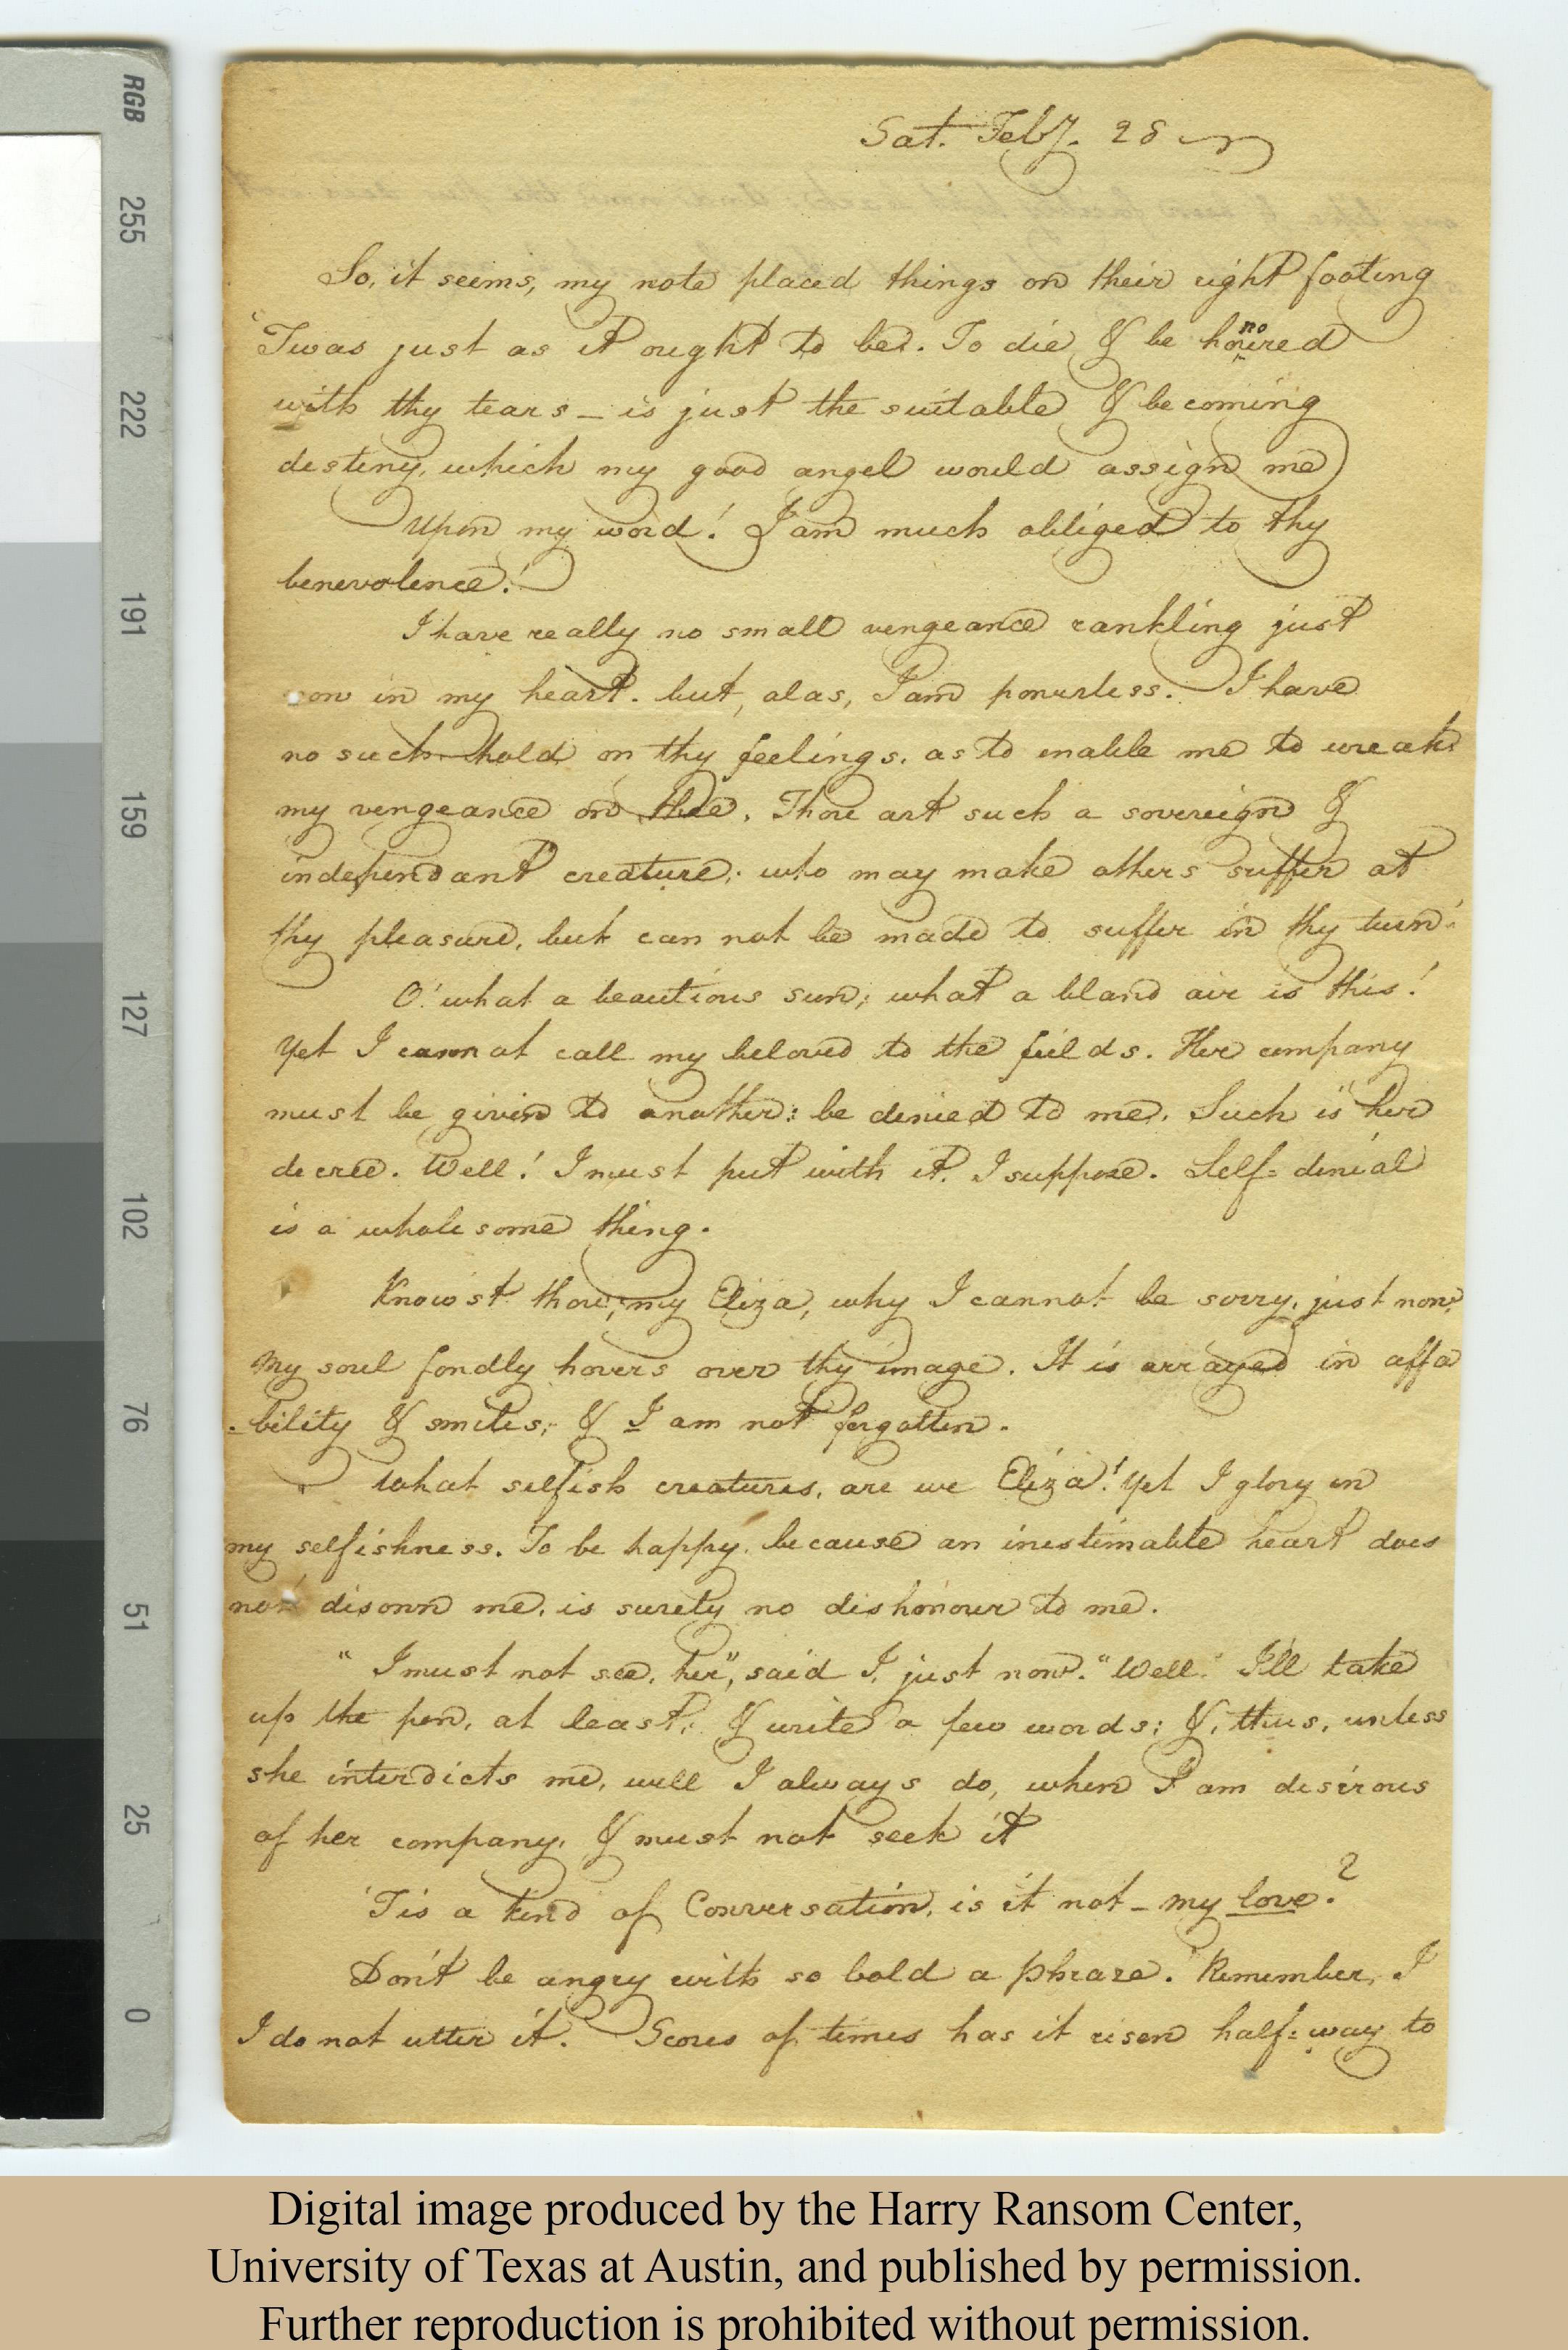 RGB
255
222
191
159
127
102
76
51
25
0
Sat. Feby. 28
So, it seems, my note placed things on their right footing
'Twas just as it ought to be. To die & be honoured
with thy tears – is just the suitable & becoming
destiny, which my good angel would assign me
Upon my word! I am much obliged to thy
benevolence!
I have really no small vengeance rankling just
now in my heart. but, alas, I am powerless. I have
no such hold on thy feelings, as to enable me to wreak
my vengeance on thee. Thou art such a sovereign &
independant creature; who may make others suffer at
thy pleasure, but can not be made to suffer in thy turn.
O! what a beautious sun; what a bland air is this!
Yet I cannot call my beloved to the feilds. Her company
must be given to another: be denied to me. Such is her
decree. Well! I must put with it, I suppose. Self=denial
is a wholesome thing.
Know'st thou, my Eliza, why I cannot be sorry, just now?
My soul fondly hovers over thy image. It is arrayed in affa
-bility & smiles; & I am not forgotten.
What selfish creatures, are we Eliza! Yet I glory in
my selfishness. To be happy, because an inestimable heart does
not disown me, is surely no dishonour to me.
"I must not see, her", said I, just now. "Well." I'll take
up the pen, at least; & write a few words; &, thus, unless
she interdicts me, will I always do, when I am desirous
of her company, & must not seek it
'Tis a kind of Conversation, is it not – my love?
Don't be angry with so bold a phrase. Remember, I
I do not utter it. Scores of times has it risen half=way to
Digital image produced by the Harry Ransom Center,
University of Texas at Austin, and published by permission.
Further reproduction is prohibited without permission.